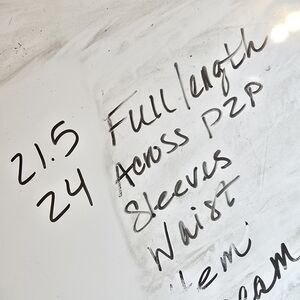 21.5 Full length
24 Across P2P
Sleeves
Waist
Hem